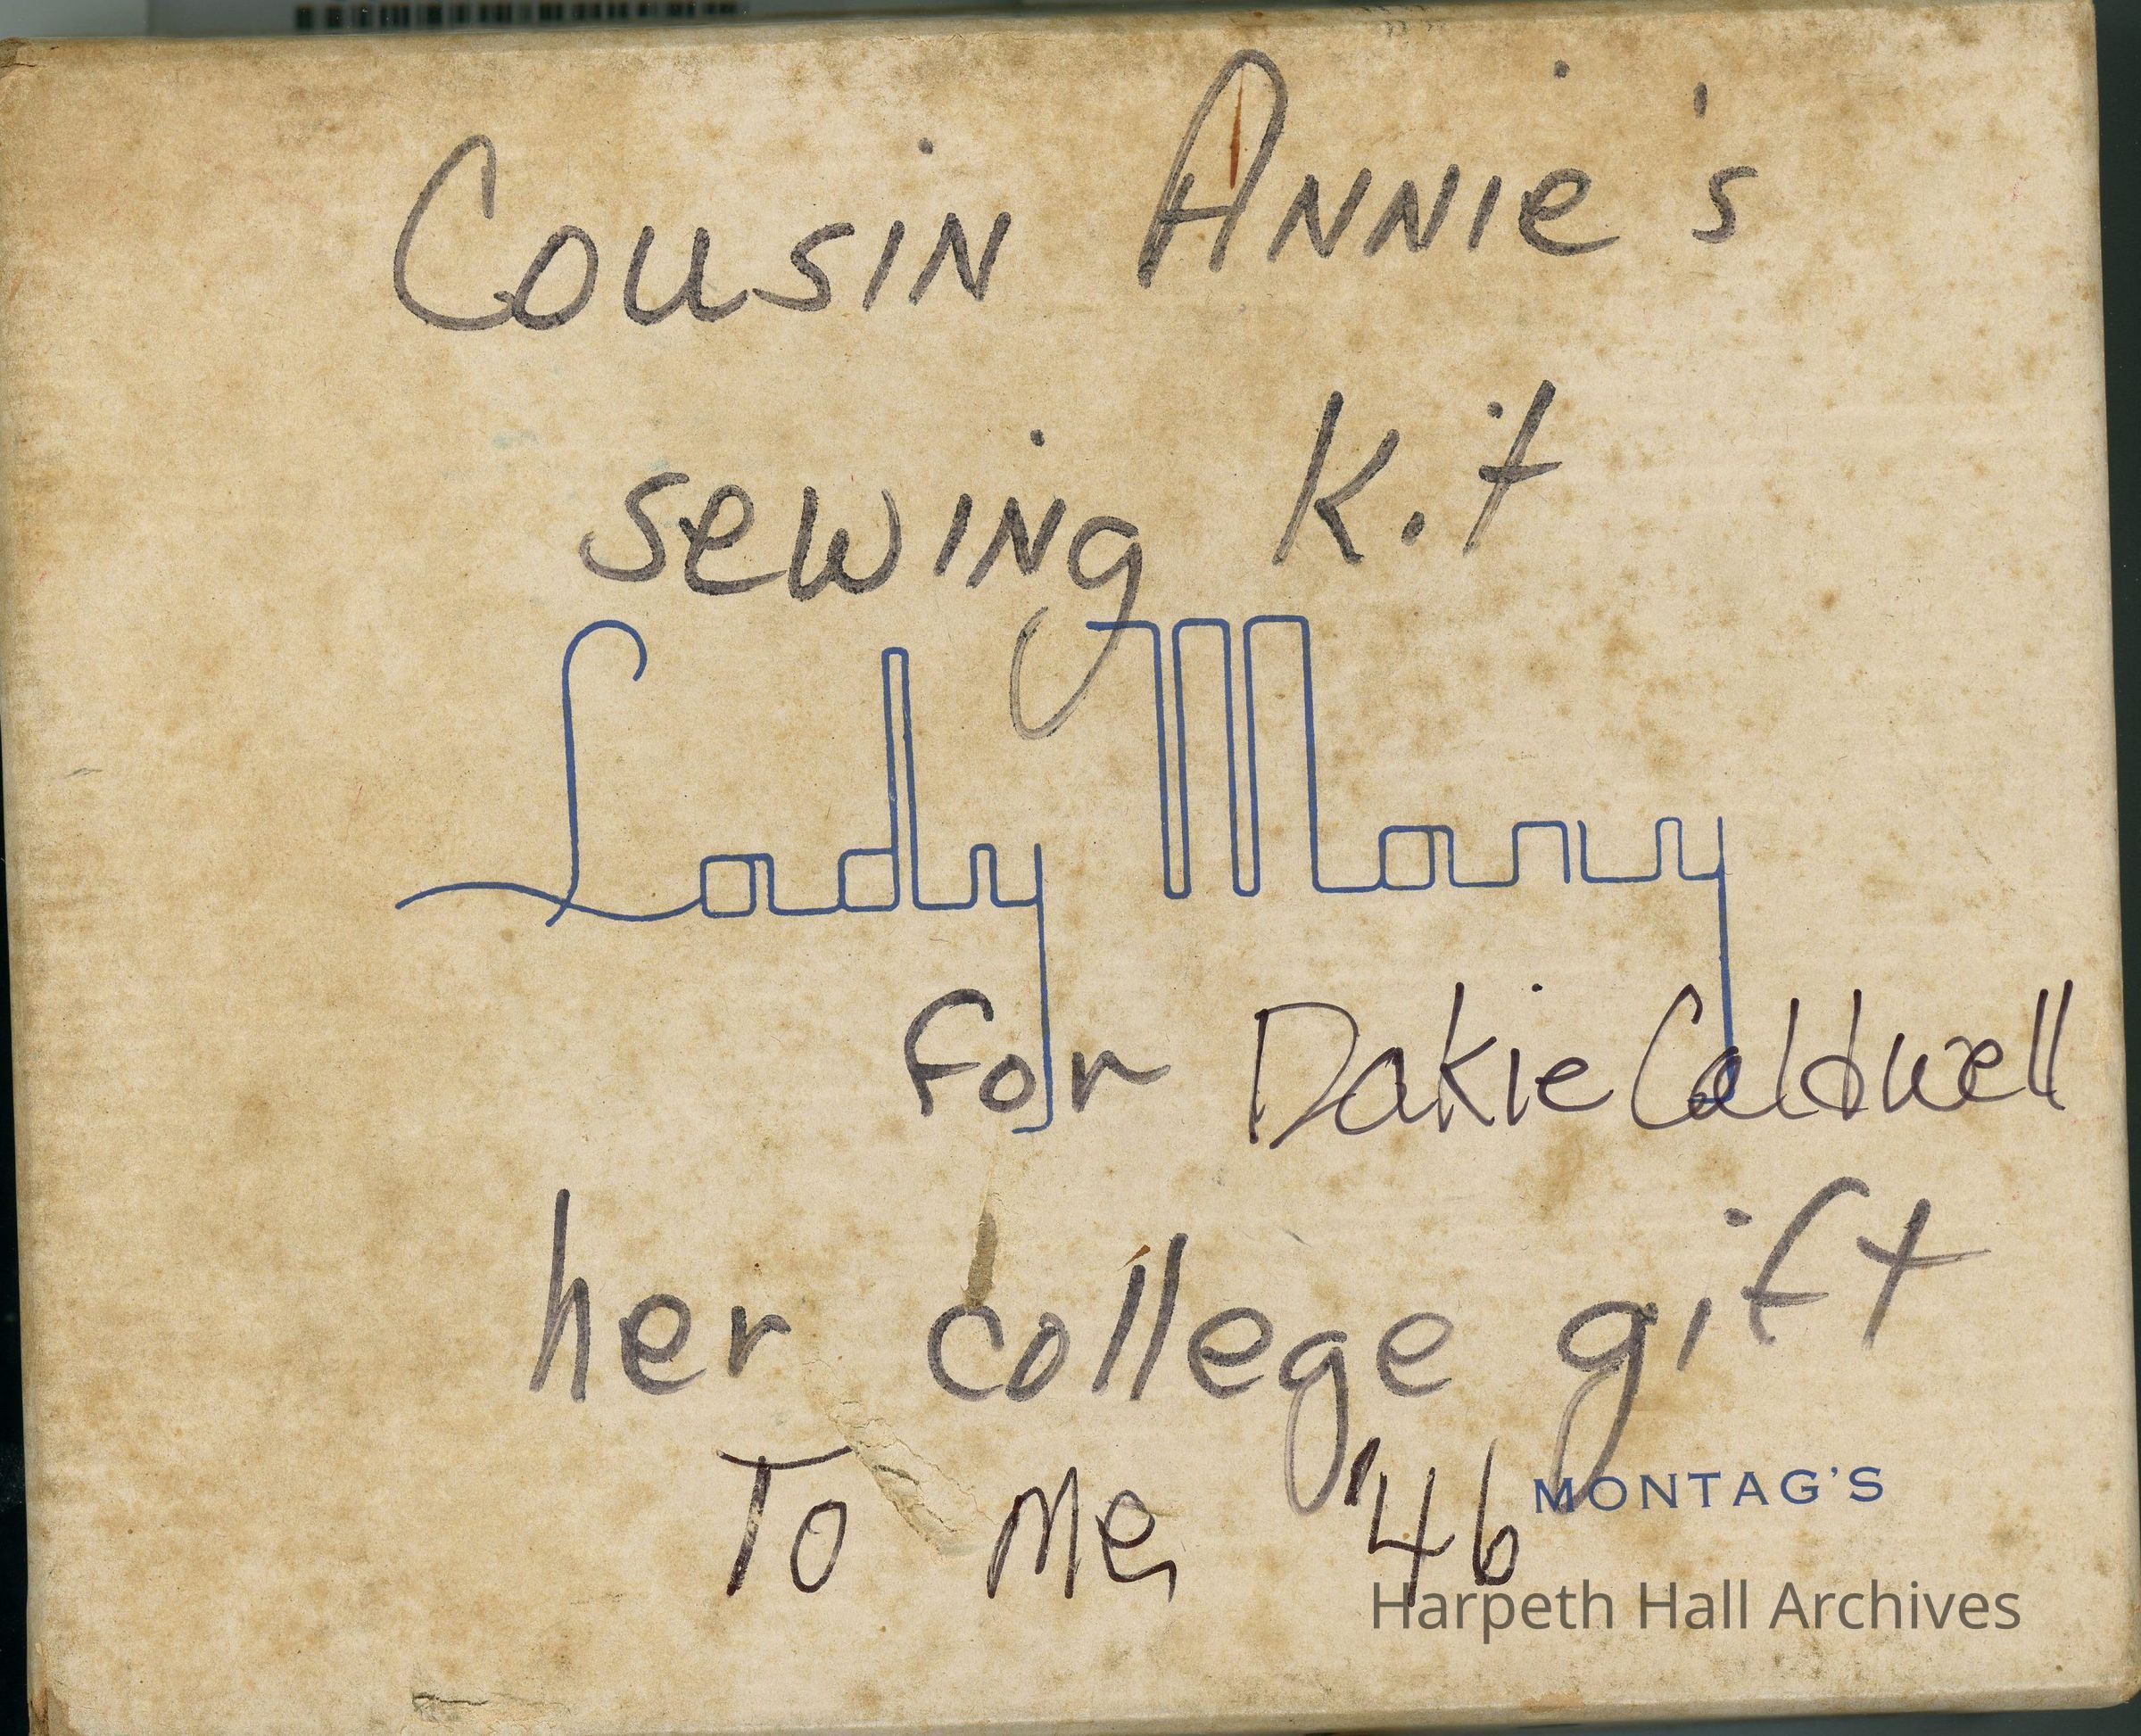 Cousin Annie's
sewing Kit
Lady Mary
for Dakie Caldwell
her college gift
To Me, '46
MONTAG'S
Harpeth Hall Archives